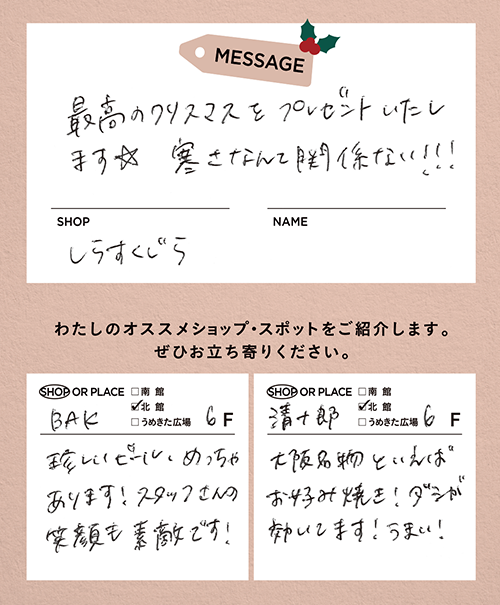 MESSAGE
最高のクリスマスをプレゼントいたし
ます☆ 寒さなんて関係ない!!!
SHOP
NAME
しらすくじら
わたしのオススメショップ・スポットをご紹介します。
ぜひお立ち寄りください。
SHOP OR PLACE
□南館
☑北館
□うめきた広場
BAK
6F
珍しいビールいめっちゃ
あります!スタッフさんの
笑顔も素敵です!
SHOP OR PLACE
□南館
☑北館
□うめきた広場
清十郎
6F
大阪名物といえば
お好み焼き!ダシが
効いてます!うまい!